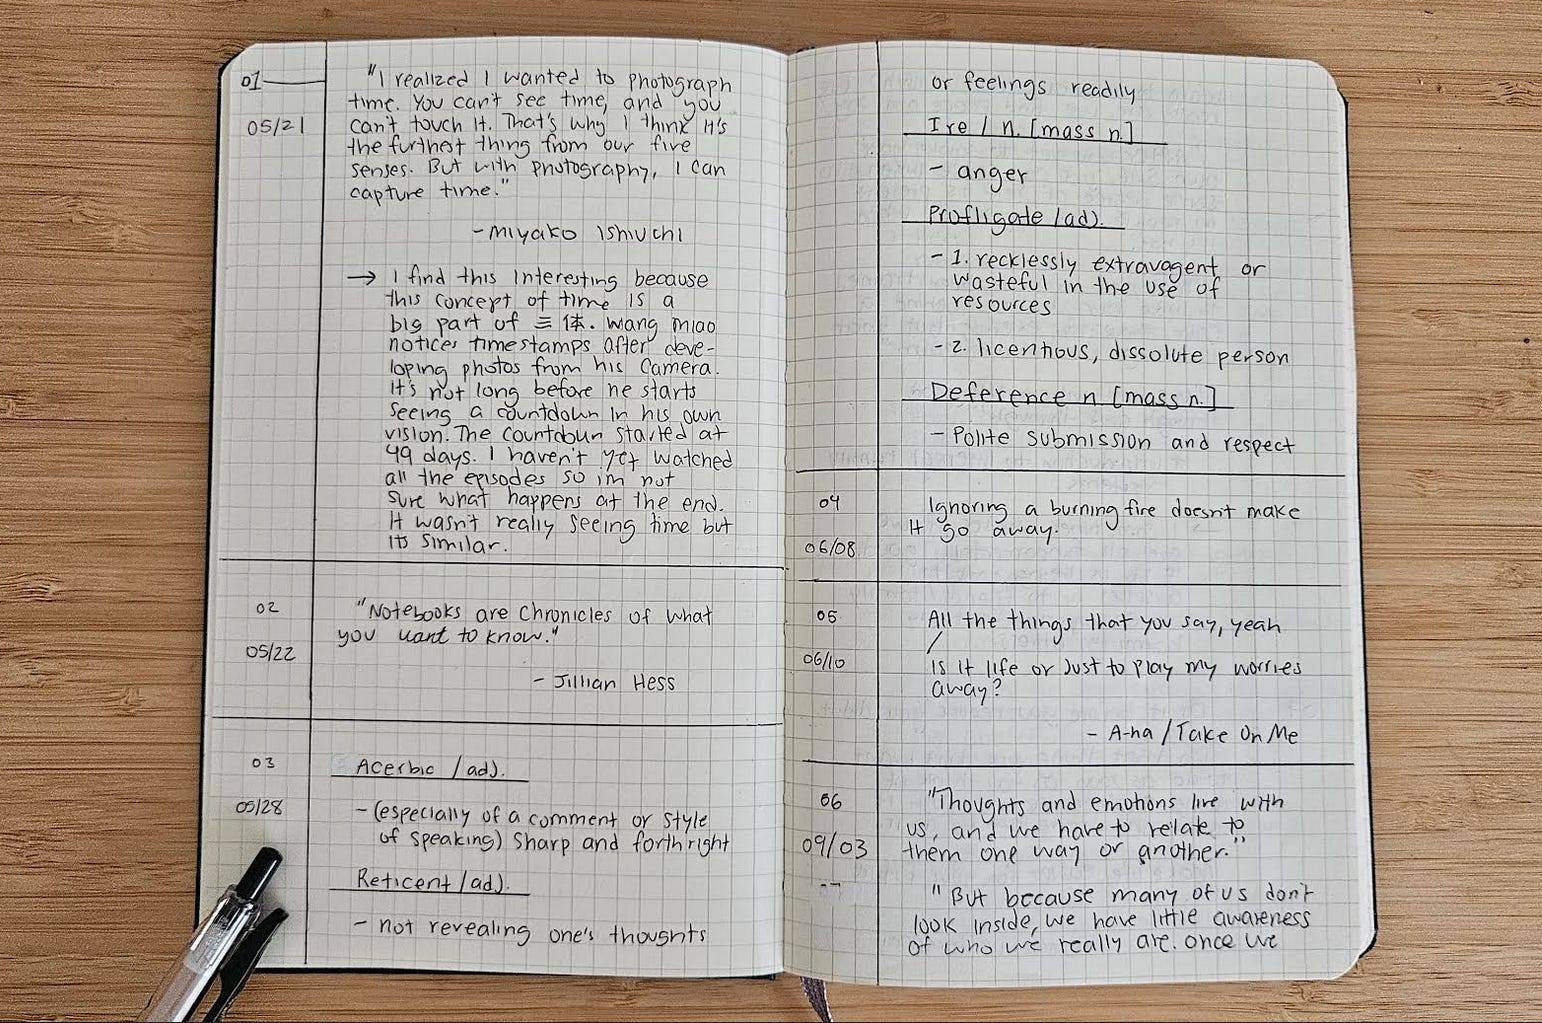 01
05/21
"I realized I wanted to photograph
time. You can't see time, and you
can't touch it. That's why I think it's
the furthest thing from our five
senses. But with photography, I can
capture time."
-Miyako Ishiuchi
→ I find this interesting because
this concept of time is a
big part of 三体. Wang miao
notices timestamps after deve-
loping photos from his camera.
It's not long before he starts
seeing a countdown in his own
vision. The countdown started at
49 days. I haven't yet watched
all the episodes so im not
sure what happens at the end.
It wasn't really seeing time but
its similar.
02
05/22
"Notebooks are chronicles of what
you want to know."
- Jillian Hess
03
05/28
Acerbic /adj.
- (especially of a comment or style
of speaking) sharp and forthright
Reticent /adj.
- not revealing one's thoughts
or feelings readily
Ire / n. [mass n.]
- anger
Profligate /adj.
- 1. recklessly extravagent or
wasteful in the use of
resources
- 2. licentious, dissolute person
Deference n [mass n.]
- Polite submission and respect
04
06/08
Ignoring a burning fire doesnt make
it go away.
05
06/10
All the things that you say, yeah
/
Is it life or Just to play my worries
away?
- A-ha / Take On Me
06
09/03
"Thoughts and emotions live with
us, and we have to relate to
them one way or another."
"But because many of us don't
look inside, we have little awareness
of who we really are. once we